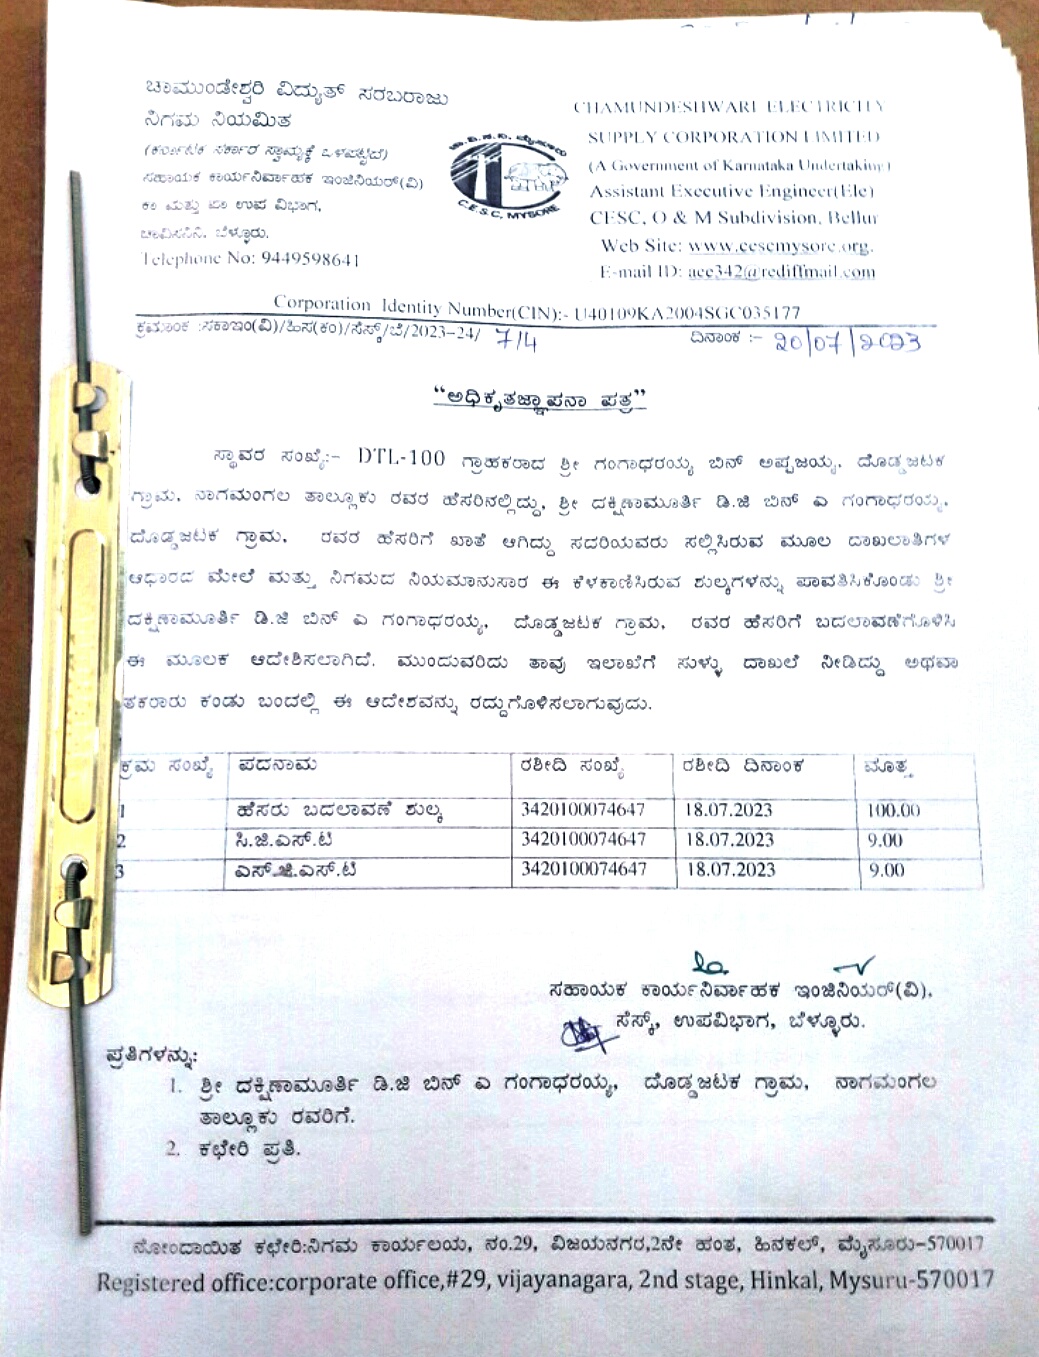 ಚಾಮುಂಡೇಶ್ವರಿ ವಿದ್ಯುತ್ ಸರಬರಾಜು
ನಿಗಮ ನಿಯಮಿತ
(ಕರ್ನಾಟಕ ಸರ್ಕಾರ ಸ್ವಾಮ್ಯಕ್ಕೆ ಒಳಪಟ್ಟಿದೆ)
ಸಹಾಯಕ ಕಾರ್ಯನಿರ್ವಾಹಕ ಇಂಜಿನಿಯರ್(ವಿ)
ಕಾ ಮತ್ತು ಪಾ ಉಪ ವಿಭಾಗ,
ಚಾವಿಸನಿನಿ, ಬೆಳ್ಳೂರು.
Telephone No: 9449598641
C.E.S.C. MYSORE
CHAMUNDESHWARI ELECTRICITY
SUPPLY CORPORATION LIMITED
(A Government of Karnataka Undertaking)
Assistant Executive Engineer(Ele)
CESC, O & M Subdivision, Bellur
Web Site: www.cescmysore.org.
E-mail ID: aee342@rediffmail.com
Corporation Identity Number(CIN):- U40109KA2004SGC035177
ಕ್ರಮಾಂಕ :ಸಕಾಇಂ(ವಿ)/ಹಿಸ(ಕಂ)/ಸೆಸ್ಕ್/ಬೆ/2023-24/ 714 ದಿನಾಂಕ :- 20/07/2023
“ಅಧಿಕೃತಜ್ಞಾಪನಾ ಪತ್ರ”
ಸ್ಥಾವರ ಸಂಖ್ಯೆ:- DTL-100 ಗ್ರಾಹಕರಾದ ಶ್ರೀ ಗಂಗಾಧರಯ್ಯ ಬಿನ್ ಅಪ್ಪಜಯ್ಯ, ದೊಡ್ಡಜಟಕ
ಗ್ರಾಮ, ನಾಗಮಂಗಲ ತಾಲ್ಲೂಕು ರವರ ಹೆಸರಿನಲ್ಲಿದ್ದು, ಶ್ರೀ ದಕ್ಷಿಣಾಮೂರ್ತಿ ಡಿ.ಜಿ ಬಿನ್ ಎ ಗಂಗಾಧರಯ್ಯ,
ದೊಡ್ಡಜಟಕ ಗ್ರಾಮ, ರವರ ಹೆಸರಿಗೆ ಖಾತೆ ಆಗಿದ್ದು ಸದರಿಯವರು ಸಲ್ಲಿಸಿರುವ ಮೂಲ ದಾಖಲಾತಿಗಳ
ಆಧಾರದ ಮೇಲೆ ಮತ್ತು ನಿಗಮದ ನಿಯಮಾನುಸಾರ ಈ ಕೆಳಕಾಣಿಸಿರುವ ಶುಲ್ಕಗಳನ್ನು ಪಾವತಿಸಿಕೊಂಡು ಶ್ರೀ
ದಕ್ಷಿಣಾಮೂರ್ತಿ ಡಿ.ಜಿ ಬಿನ್ ಎ ಗಂಗಾಧರಯ್ಯ, ದೊಡ್ಡಜಟಕ ಗ್ರಾಮ, ರವರ ಹೆಸರಿಗೆ ಬದಲಾವಣೆಗೊಳಿಸಿ
ಈ ಮೂಲಕ ಆದೇಶಿಸಲಾಗಿದೆ. ಮುಂದುವರಿದು ತಾವು ಇಲಾಖೆಗೆ ಸುಳ್ಳು ದಾಖಲೆ ನೀಡಿದ್ದು ಅಥವಾ
ತಕರಾರು ಕಂಡು ಬಂದಲ್ಲಿ ಈ ಆದೇಶವನ್ನು ರದ್ದುಗೊಳಿಸಲಾಗುವುದು.
ಕ್ರಮ ಸಂಖ್ಯೆ ಪದನಾಮ ರಶೀದಿ ಸಂಖ್ಯೆ ರಶೀದಿ ದಿನಾಂಕ ಮೊತ್ತ
1 ಹೆಸರು ಬದಲಾವಣೆ ಶುಲ್ಕ 3420100074647 18.07.2023 100.00
2 ಸಿ.ಜಿ.ಎಸ್.ಟಿ 3420100074647 18.07.2023 9.00
3 ಎಸ್.ಜಿ.ಎಸ್.ಟಿ 3420100074647 18.07.2023 9.00
ಸಹಾಯಕ ಕಾರ್ಯನಿರ್ವಾಹಕ ಇಂಜಿನಿಯರ್(ವಿ),
ಸೆಸ್ಕ್, ಉಪವಿಭಾಗ, ಬೆಳ್ಳೂರು.
ಪ್ರತಿಗಳನ್ನು:
1. ಶ್ರೀ ದಕ್ಷಿಣಾಮೂರ್ತಿ ಡಿ.ಜಿ ಬಿನ್ ಎ ಗಂಗಾಧರಯ್ಯ, ದೊಡ್ಡಜಟಕ ಗ್ರಾಮ, ನಾಗಮಂಗಲ
ತಾಲ್ಲೂಕು ರವರಿಗೆ.
2. ಕಛೇರಿ ಪ್ರತಿ.
ನೋಂದಾಯಿತ ಕಛೇರಿ:ನಿಗಮ ಕಾರ್ಯಲಯ, ನಂ.29, ವಿಜಯನಗರ,2ನೇ ಹಂತ, ಹಿನಕಲ್, ಮೈಸೂರು-570017
Registered office:corporate office,#29, vijayanagara, 2nd stage, Hinkal, Mysuru-570017